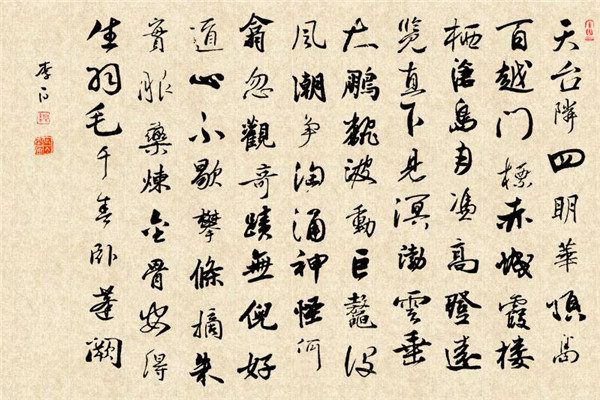 天台隣四明華頂高
百越門標赤城霞樓
栖滄島月憑高登遠
覽直下見溟渤雲垂
大鵬翻波動巨鼇沒
風潮争洶涌神怪何
翕忽觀奇蹟無倪好
道心不歇攀條摘朱
實服藥煉金骨安得
生羽毛千春卧蓬闕
李白